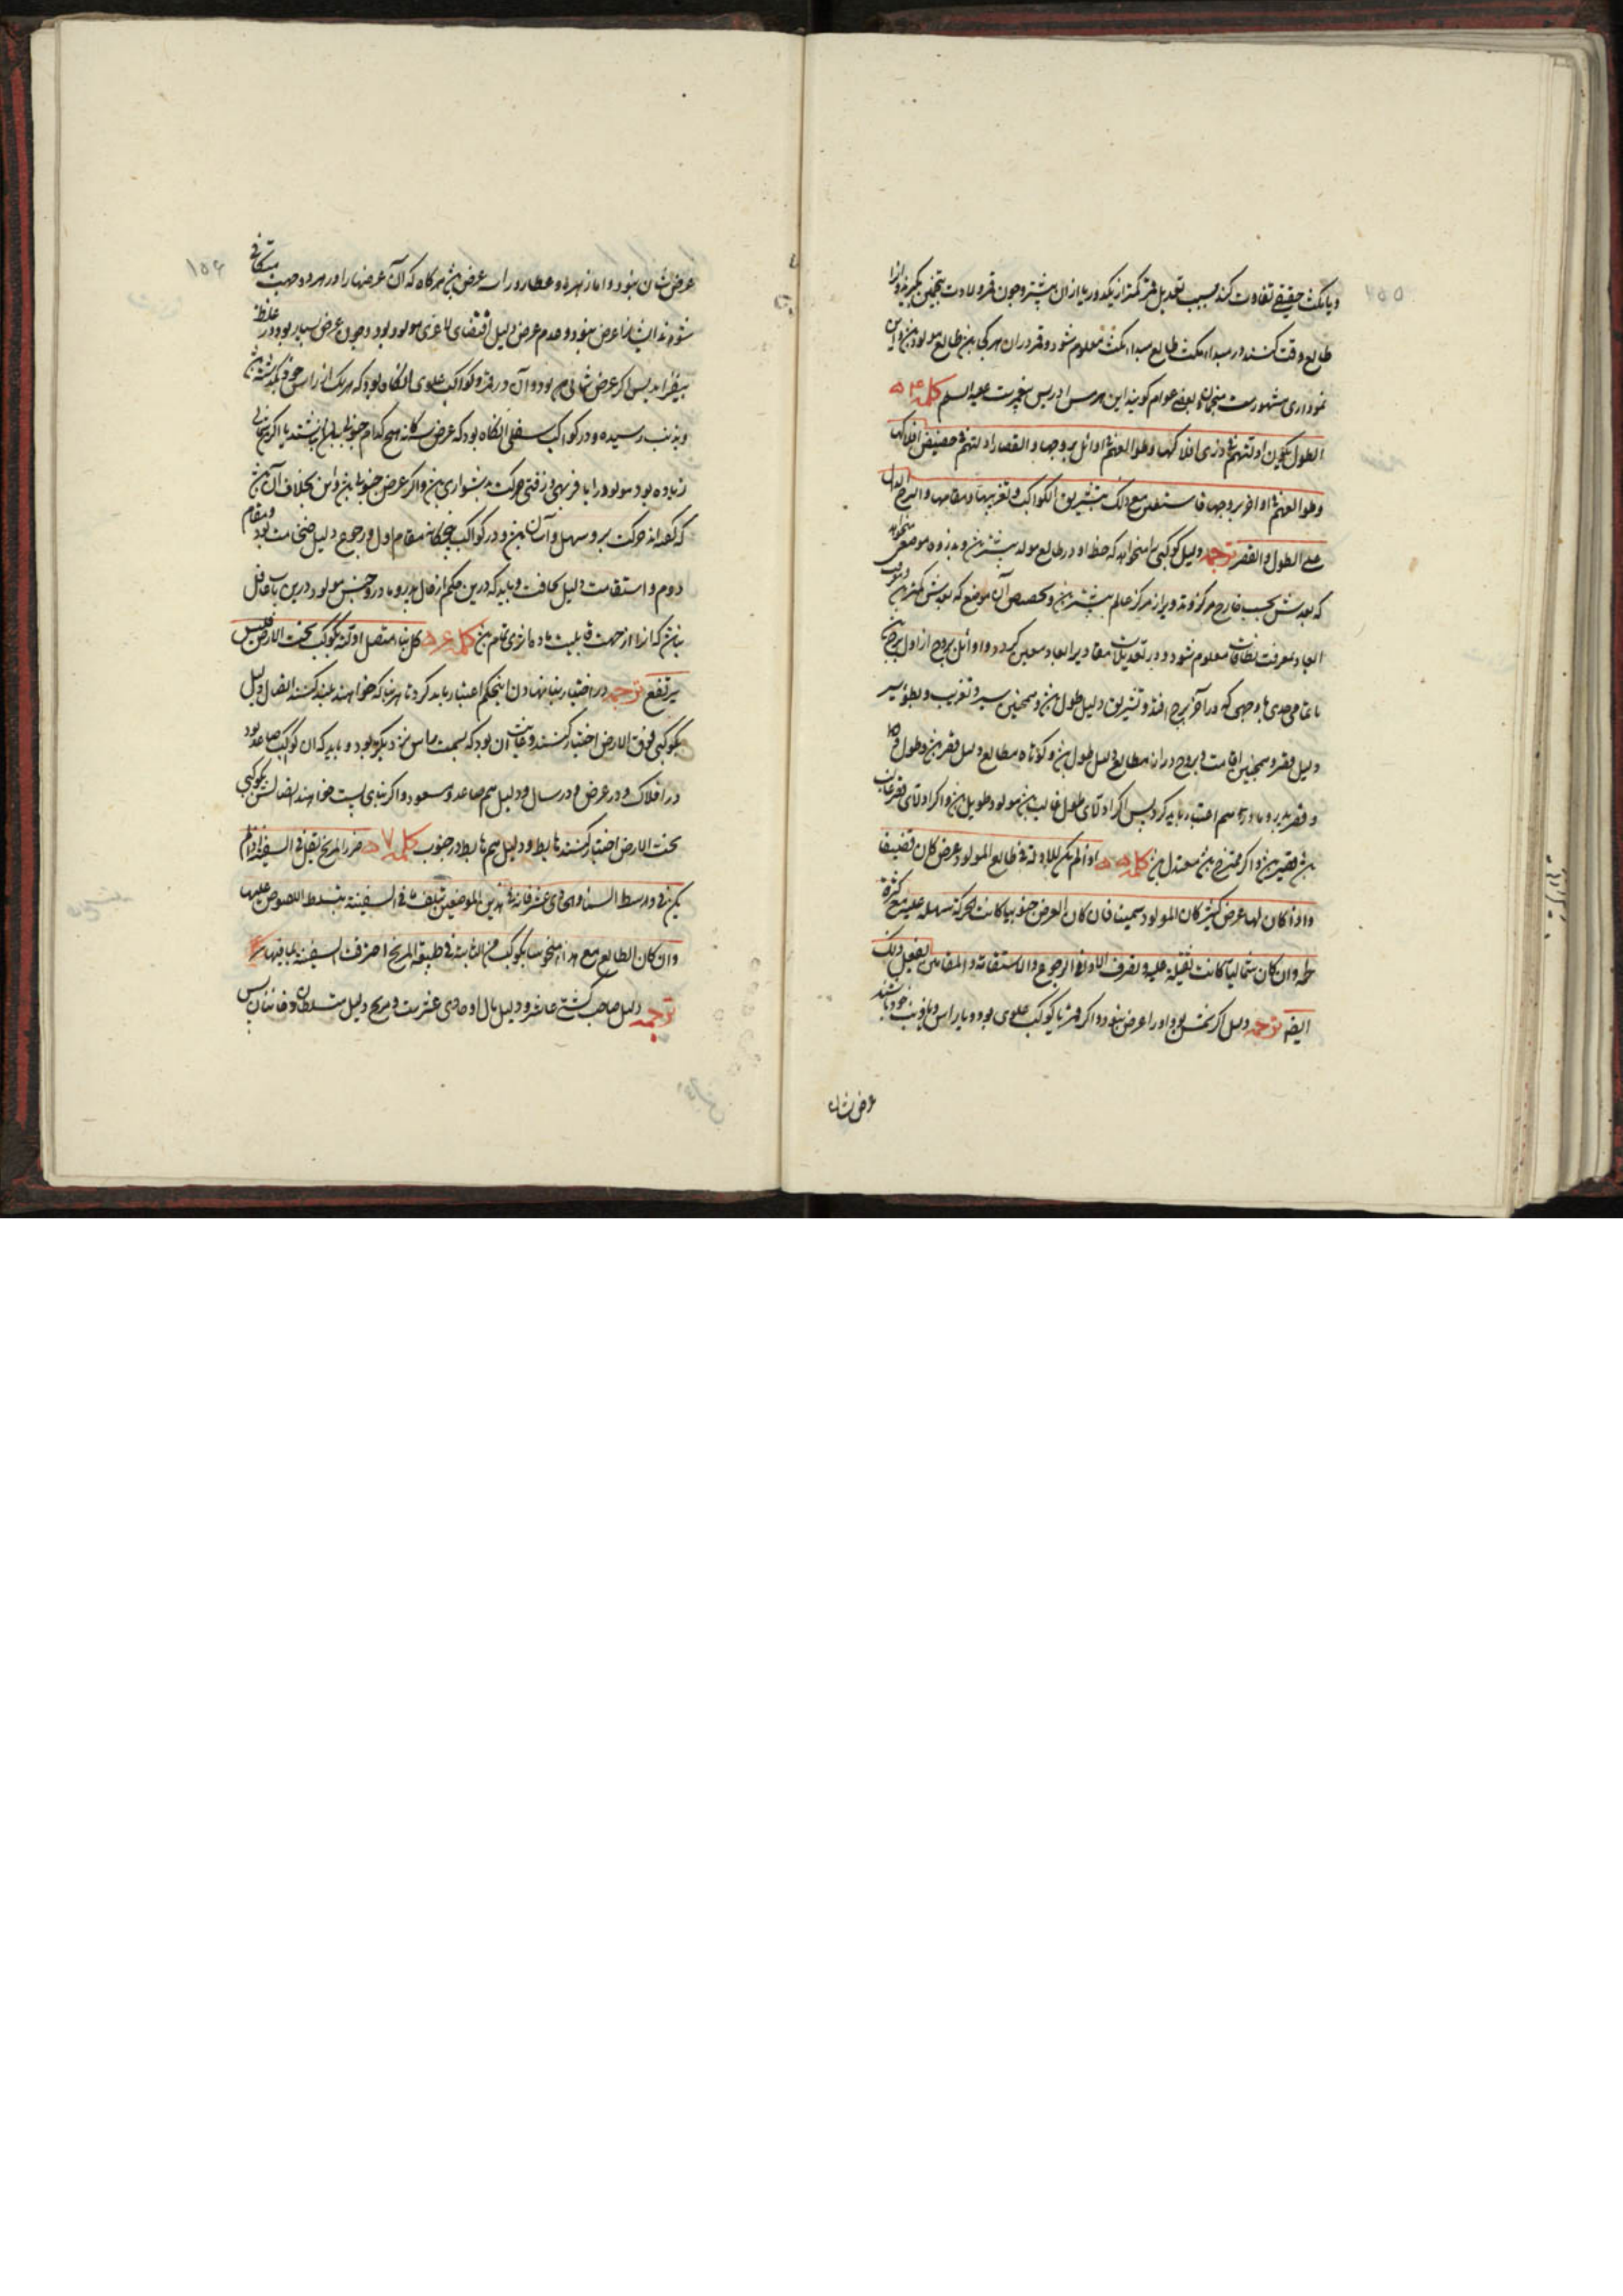 و یا مکث حقیقی تفاوت کند بسبب تعدیل قمر کمتر از یکدور یا ازان بیشتر و چون قمر ولادت بتخمین بگیرند و ازو
طالع وقت کنند در مبداء مکث طالع مبداء مکث معلوم شود و قمر دران هر کجا بود طالع مولود بود و این
نموداری مشهورست منجمان و بعضی عوام گویند این هرمس ادریس پیغمبرست علیه السلم کلمه ۵۴
الطول یکون ادلتهم فی ذری افلاکها و طوالعهم اوائل بروجها و القصار ادلتهم فی حضیض افلاکها
و طوالعهم اواخر بروجها فاستعن مع ذلک بتشریق الکواکب و تغریبها و مقامها و البرج الدال
علی الطول و القصر ترجمه دلیل کوکبی را میخواهد که حظ او در طالع مولد بیشتر بود و بذروه موضعی میخواهد
که بعدش بحسب خارج مرکز و تدویر از مرکز عالم بیشتر بود و بحضیض آن موضع که بعدش کمتر بود
ابعاد بمعرفت نطاقات معلوم شود و در تعدیلات مقادیر ابعاد معین گردد و اوائل بروج از اول برج
تا تمامی حدی با وجهی که در آخر برج افتد و تشریق دلیل طول بود و همچنین سیر و تغریب و بطوء سیر
دلیل قصر و همچنین اقامت و بروج دراز مطالع دلیل طول بود و کوتاه مطالع دلیل قصر بود و طول
و قصر پدر و مادر را هم اعتبار باید کرد پس اگر ادلهٔ طول غالب بود مولود طویل بود و اگر ادلهٔ قصر غالب
بود قصیر بود و اگر ممتزج بود معتدل بود کلمه ۵۵ اذا لم یکن للادلة فی طالع المولود عرض کان قضیفا
و اذا کان لها عرض کثیر کان المولود سمینا فان کان العرض جنوبیا کانت الحرکة سهلة علیه مع کثرة
لحمه و ان کان شمالیا کانت ثقیلة علیه و تصرف الادلة فی الرجوع و الاستقامة و المقامین یفعل ذلک
ایضا ترجمه دلیل اگر شمس بود او را عرض نبود و اگر قمر یا کوکب علوی بود و با راس و یا ذنب خود باشند
عرض شان
۱۵۶
عرض شان نبود و اما زهره و عطارد را سه عرض بود هر گاه که آن عرضها را در هر دو جهت متکافی
شوند ایشانرا عرض نبود و عدم عرض دلیل اقتضای لاغری مولود بود و چون عرض بسیار بود در غلظ
بیفزاید پس اگر عرض شمالی بود و آن در قمر و کواکب علوی آنگاه بود که هر یک از راس خود گذشته
و بذنب رسیده و در کواکب سفلی آنگاه بود که عرض سه‌گانه هیچ کدام جنوبی نباشند یا اگر شمالی
زیاده بود مولود را با فربهی و زفتی حرکت بدشواری بود و اگر عرض جنوبی بود و این بخلاف آن بود
که گفته‌اند حرکت برو سهل و آسان بود و در کواکب پنجگانه مقام اول و رجوع دلیل ضخامت بود و مقام
دوم و استقامت دلیل نحافت و باید که درین حکم از حال پدر و مادر و جنس مولود درین باب غافل
نباشند که از جهت قابلیت ماده مانری تمام بود کلمه ۵۶ کل بناء متصل ادلته بکوکب تحت الارض فلیس
یرتفع ترجمه در اختیار بنا نهادن این حکم اعتبار باید کرد تا هر بنا که خواهند بلند کنند اتصال دلیل
بکوکبی فوق الارض اختیار کنند و غایت آن بود که بسمت راس نزدیک بود و باید که آن کوکب صاعد بود
در افلاک و در عرض و در سال و دلیل هم صاعد و مسعود و اگر بنای پست خواهند اتصالش بکوکبی
تحت الارض اختیار کنند هابط و دلیل هم هابط در جنوب کلمه ۵۷ ضرر المریخ یقل فی السفینة اذا لم
یکن فی وسط السماء و الحادی عشر فانه فی هذین الموضعین یتلف ما فی السفینة بتسلط اللصوص علیها
و ان کان الطالع مع هذا منحوسا بکوکب من الثابتة فی طبیعة المریخ احترقت السفینة بما فیها
ترجمه دلیل صاحب کشتی عاشر و دلیل مال او حادی عشرست و مریخ دلیل متسلطان و خائنان پس